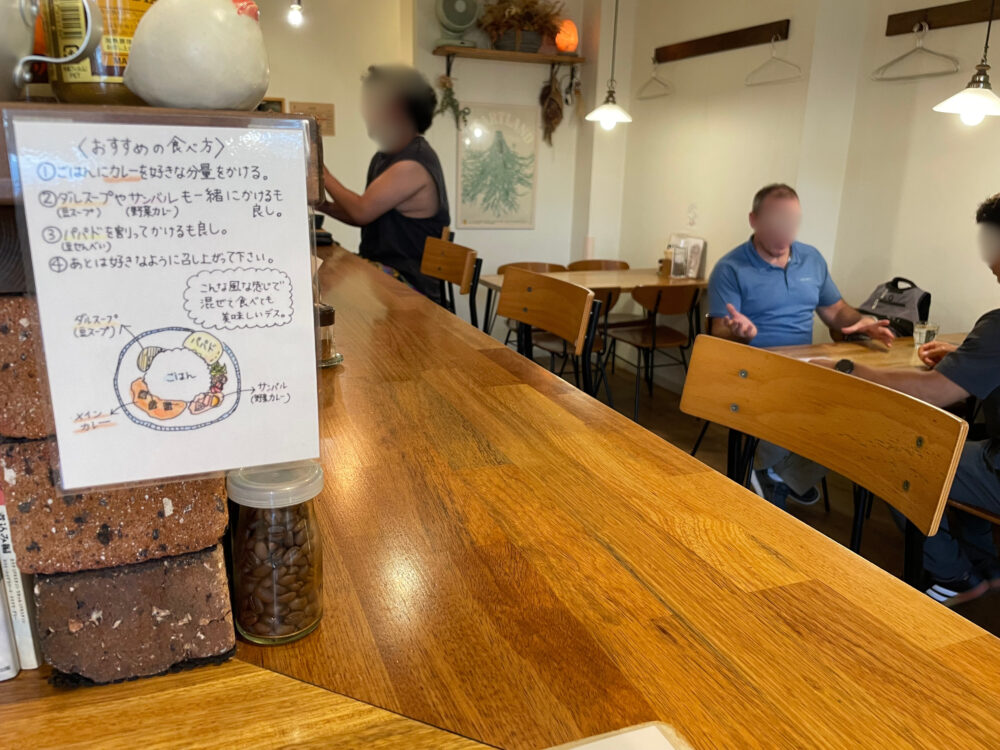 〈おすすめの食べ方〉
①ごはんにカレーを好きな分量をかける。
②ダルスープやサンバルも一緒にかけるも
(豆スープ) (野菜カレー) 良し。
③パパドを割ってかけるも良し。
(豆せんべい)
④あとは好きなように召し上がって下さい。
こんな風な感じで
混ぜて食べても
美味しいデス。
ダルスープ
(豆スープ)
パパド
ごはん
サンバル
(野菜カレー)
メイン
カレー